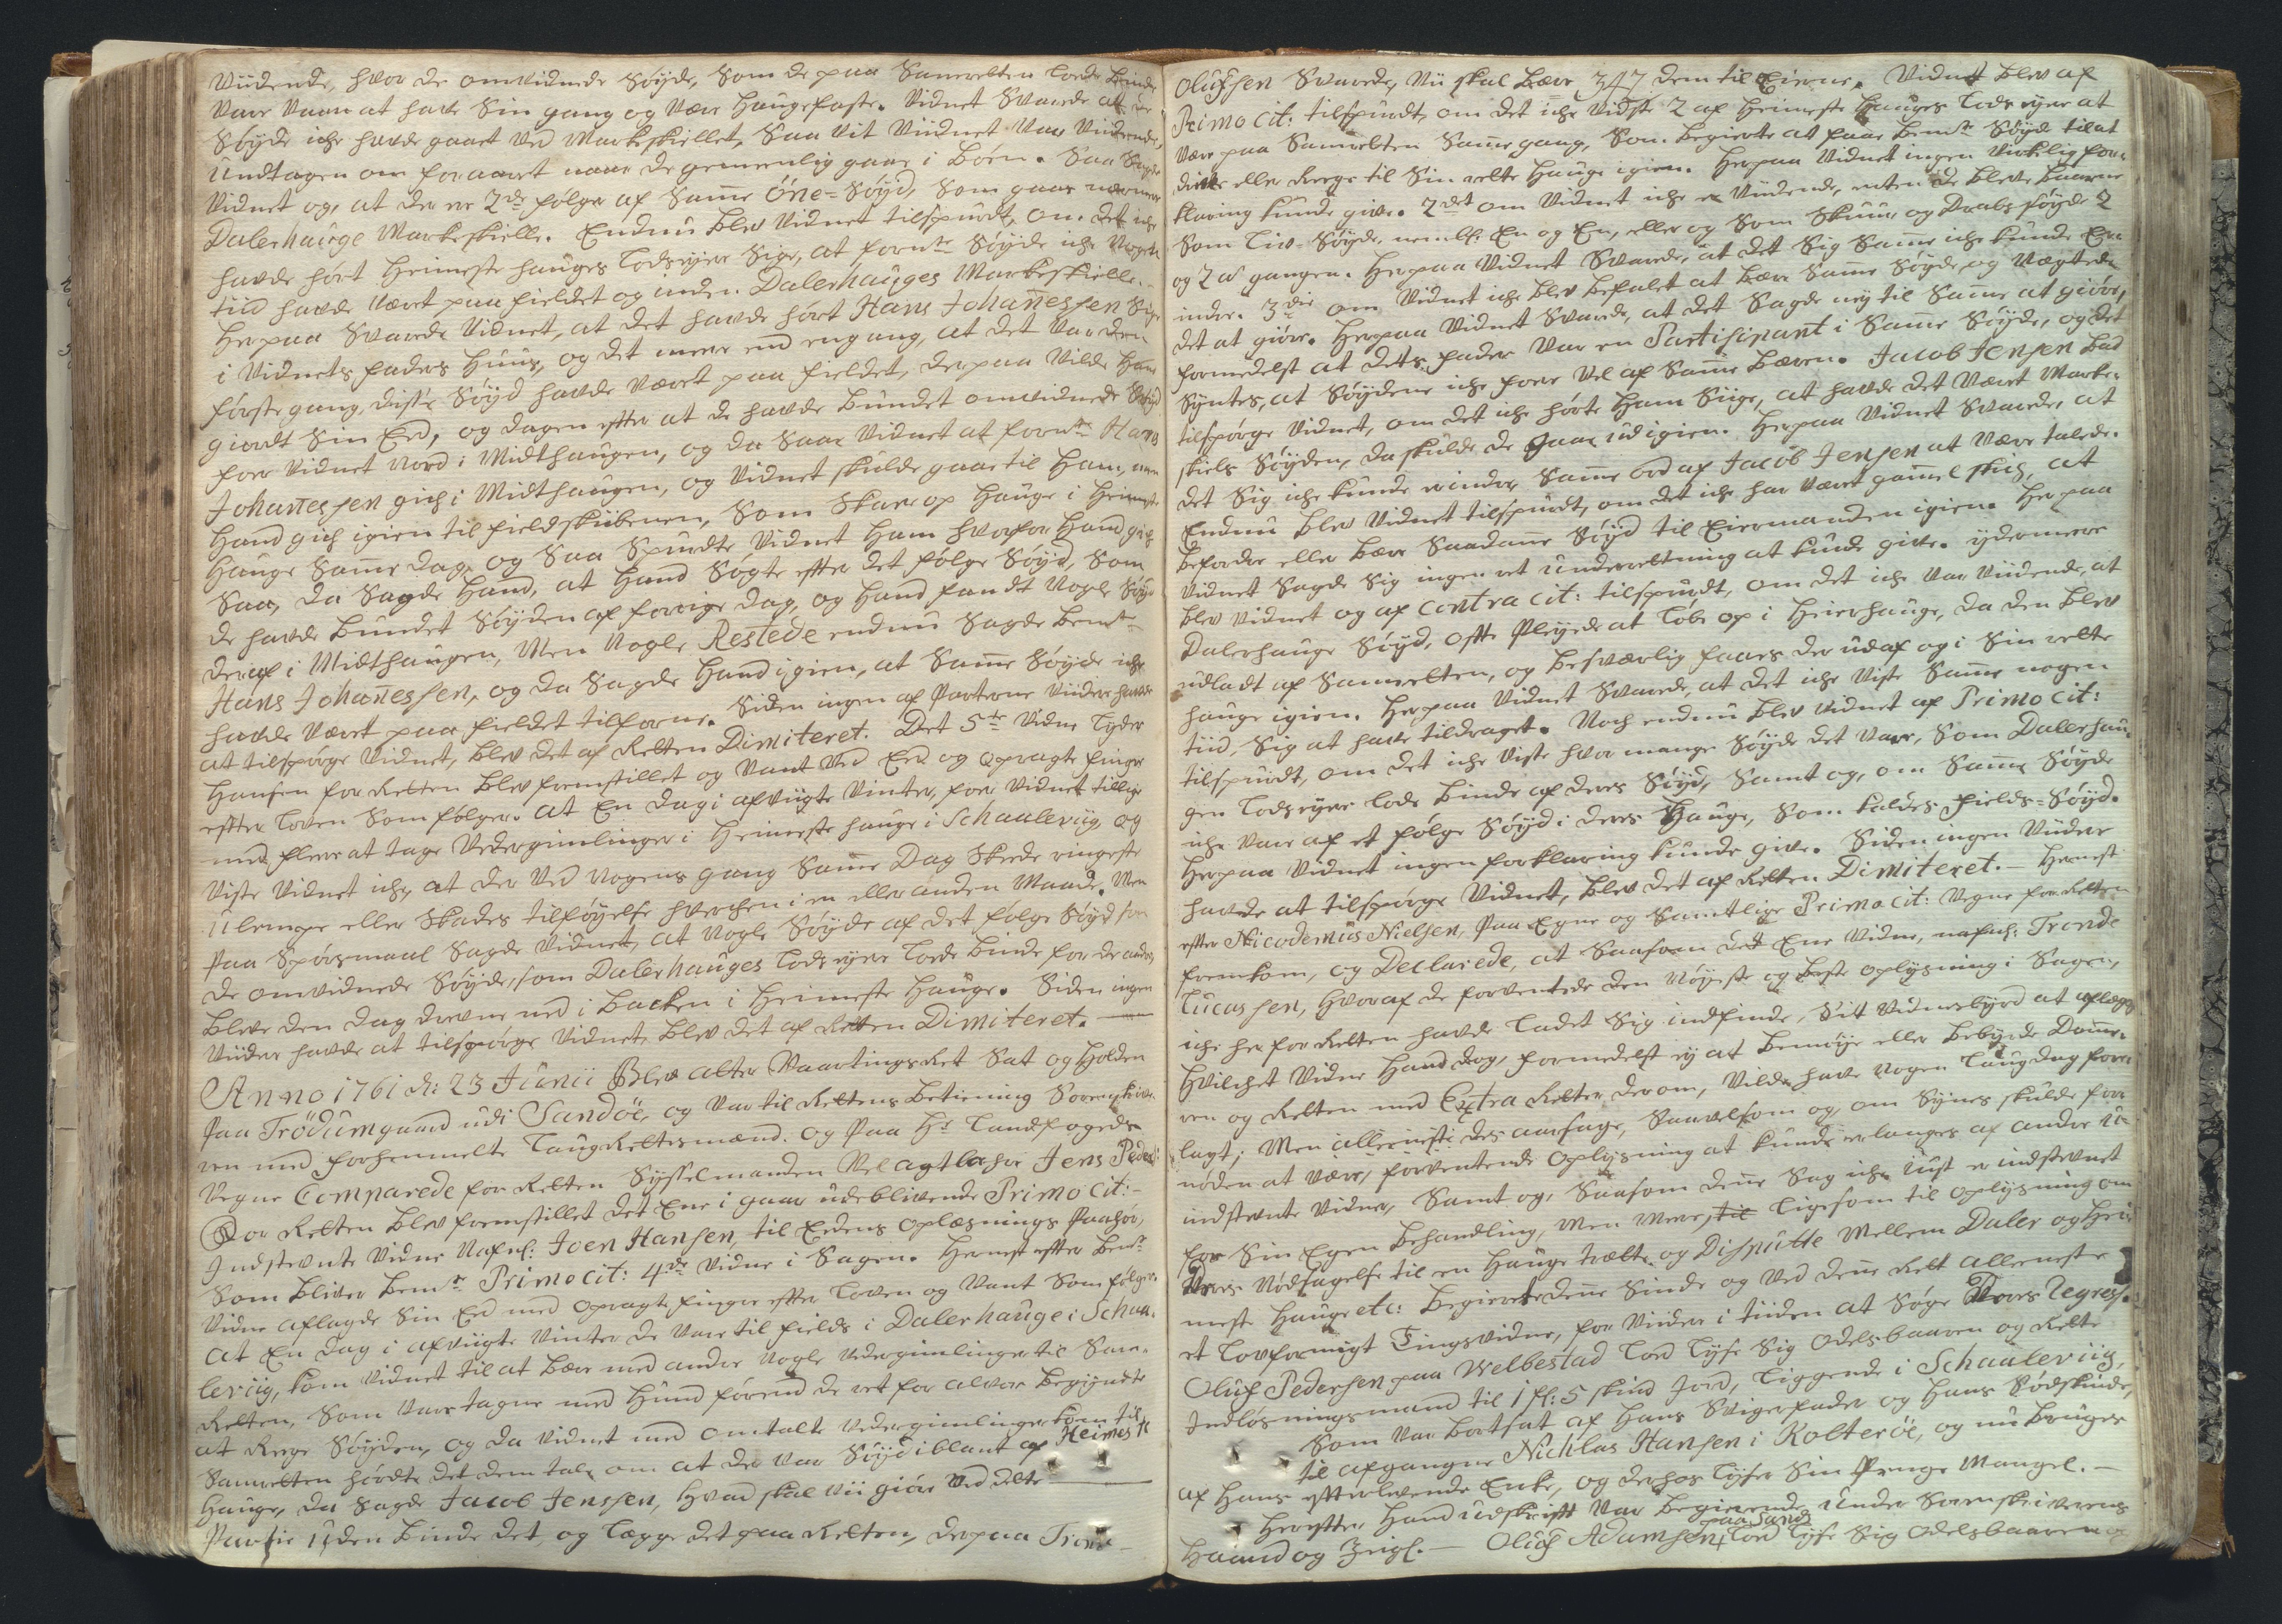 Viidende, hvor de omvidnede Søyde, som de paa Sanerelten lode binde
vare vaan at have Sin gang og være Haugefaste. Vidnet Svarede at de
Søyde iche havde gaaet ved Markeskiellet, saa vit Viidnet var Viidende,
undtagen om foraaret naar de gemeenlig gaar i Børn. Saa Sagde
Vidnet og, at der er 2de følger af Samme Øne-Søyd, som gaar nærmere
Dalerhauge Markeskielle. Endnu blev Vidnet tilspurdt, om det iche
havde hørt Heimeste hauges Lodseyere Sige, at fornte Søyde iche Nogen
tiid havde været paa fieldet og inden Dalerhauges Markeskielle.
Herpaa Svarede Vidnet, at det havde hørt Hans Johannessen Sige
i Vidnets faders Huus, og det meere end engang, at det var den
første gang, disse Søyd havde været paa fieldet, derpaa vilde Hand
giordt Sin Eed, og dagen efter at de havde bundet omvidnede Søyd
foer Vidnet Nord i Midthaugen, og da saae Vidnet at fornte Hans
Johannessen gich i Midthaugen, og Vidnet skulde gaae til Ham, men
Hand gich igien til fieldskubenen, som Skare op Hauge i Heimeste
Hauge Samme dag, og saa Spurdte Vidnet Ham hvorfor Hand gich
saa, da Sagde Hand, at Hand Søgte efter det følge Søyd, som
de havde bundet Søyden af forrige dag, og Hand fandt Nogle Søyd
deraf i Midthaugen, Men Nogle Restede endnu Sagde bemte
Hans Johannessen, og da Sagde Hand igien, at Samme Søyde iche
havde været paa fieldet tilforne. Siden ingen af Parterne Viidere havde
at tilspørge Vidnet, blev det af Retten Dimiteret. Det 5te Vidne Lyder
Hansen for Retten blev fremstillet og vant ved Eed og opragte finger
efter Loven som følger. At En dag i afvigte Vinter, foer Vidnet tillige
med fleere at tage Vedergimlinger i Heimeste hauge i Schaaleviig, og
Viste Vidnet iche, at der ved Nogens gang Samme Dag Skede ringeste
Ulempe eller Skades tilføyelse hverchen i en eller anden Maade. Men
Paa Spørsmaal Sagde Vidnet, at Nogle Søyde af det følge Søyd, for
de omvidnede Søyde, som Dalerhauges Lodseyere Lode binde for de andre,
bleve den dag drevne ned i Backen i Heimeste Hauge. Siden ingen
Viidere havde at tilspørge Vidnet, blev det af Retten Dimiteret.
Anno 1761 d: 23 Junii Blev atter Vaartings Ret Sat og Holden
Paa Trødumgaard udi Sandøe, og var til Rettens betiening Sorenskive-
ren med forhenmelte LaugRettesmænd. og Paa Hr Landfogeds
Vegne Comparede for Retten Sysselmanden Velagtbahre Jens Peders:
For Retten blev fremstillet det Ene i gaar udeblivende Primo Cit:
Indstevnte Vidne Nafnl: Joen Hansen, til Edens oplæsnings Paahør,
som bliver bemte Primo Cit: 4de Vidne i Sagen. Hernest efter bemte
Vidne aflagde Sin Eed med opragte finger efter Loven og vant som følger.
At En dag i afvigte Vinter de vare til fields i Dalerhauge i Schaa-
leviig, kom Vidnet til at bære med andre Nogle Vedergimlinger til San-
Retten, som vare tagne med Hund førend de ret for alvor begyndte
at Rege Søyden, og da Vidnet med omtalte Vedergimlinger kom til
Sanretten hørdte det dem tale om at der var Søyd iblant af Heimest
Hauge, da Sagde Jacob Jenssen, hvad skal vii giøre ved dette
Partie uden binde det, og Lægge det paa Retten, derpaa Trond
Olufsen Svarede, Vii skal bære dem til Eierne. Vidnet blev af
Primo Cit: tilspurdt, om det iche vidste 2 af Heimeste Hauges Lodseyere at
være paa Sanretten Samme gang, som begierte at faae bemte Søyde til at
drive eller Rege til Sin rette Hauge igien. Herpaa Vidnet ingen Virkelig for-
klaring kunde give. 2det om Vidnet iche er Viidende, enten de bleve baarne
som Liv-Søyde, nemlf: En og En, eller og som Skuur og Drabssøyde 2
og 2 ad gangen. Herpaa Vidnet Svarede, at det Sig Samme iche kunde Er-
indre. 3die om Vidnet iche blev befalet at bære Samme Søyde og vægtede
det at giøre. Herpaa Vidnet Svarede, at det Sagde ney til Samme at giøre,
formedelst at dets fader var en Partisipant i Samme Søyde, og det
Syntes, at Søydene iche fore vel af Samme bæren. Jacob Jensen bad
tilspørge Vidnet, om det iche hørte Ham Siige, at havde det været Marke-
skiels Søyden, da skulde de gaae ud igien. Herpaa Vidnet Svarede, at
det Sig iche kunde erindre Samme ord af Jacob Jensen at være talede.
Endnu blev Vidnet tilspurdt, om det iche har været gammel skich, at
befordre eller bære Saadanne Søyd til Eiermanden igien. Herpaa
Vidnet Sagde Sig ingen ret underretning at kunde give. ydermere
blev Vidnet og af Contra Cit: tilspurdt, om det iche var Viidende, at
Dalerhauge Søyd, ofte Pleyede at løbe op i Heierhauge, da den blev
udladt af Sanretten, og besværlig faaes der ud af og i Sin rette
hauge igien. Herpaa Vidnet Svarede, at det iche Viste Samme nogen
tiid, Sig at have tildraget. Noch endnu blev Vidnet af Primo Cit:
tilspurdt, om det iche Viste hvor mange Søyde det vare, som Dalerhau-
gen Lodseyere lode binde af deres Søyd, Samt og, om Samme Søyde
iche vare af et følge Søyd i deres Hauge, som kaldes fields-Søyd.
Herpaa Vidnet ingen forklaring kunde give. Siden ingen Viidere
havde at tilspørge Vidnet, blev det af Retten Dimiteret. — Hernest
efter Nicodemus Nielsen, Paa Egne og Samtlige Primo Cit: Vegne for Retten
fremkom, og Declarede, at Saasom det Ene Vidne, nafnl: Tronde
Lucassen, hvoraf de forventede den Nøyeste og beste oplysning i Sagen,
iche her for Retten havde Ladet Sig indfinde, Sit Vidnesbyrd at aflægge,
Hvilchet Vidne Hand dog, formedelst ey at bemøye eller bebyrde Domme-
ren og Retten med Extra Retter derom, vilde have Nogen Laugdag fore-
lagt; Men allerneste des aarsage, Saavelsom og, om Synes skulde for-
nøden at være, forventende oplysning at kunde erlanges af andre u-
indstevnte Vidner, Samt og, Saasom denne Sag iche just er indstevnet
for Sin Egen behandling, men mere, Ligesom til oplysning om
Deres Nødsagelse til en Hauge trætte og Dispütte Mellem Daler og Hei-
meste Hauge etc: begierede denne Sinde og ved denne Rett allerneste
et Lovformigt Tingsvidne, for Viidere i tiiden at Søge Deres Regress.
Oluf Pedersen paa Welbestad Lod Lyse Sig Odelsbaaren og Rette
Indløsningsmand til 1 fl: 5 skind Jord, Liggende i Schaaleviig,
som var bortsat af Hans Svigerfader og Hans Sødskinde,
til afgangne Nichlas Hansen i Kolterøe, og nu bruges
af Hans efterlevende Enke, og derhos Lyser Sin Penge Mangel. —
Herefter Hand udskrift var begierende under Sorenskriverens
Haand og Zeigl. — Oluf Adamsen paa Sand Lod Lyse Sig Odelsbaaren og